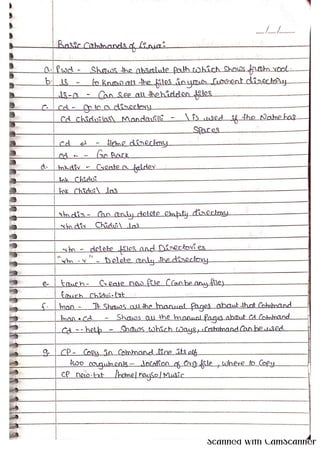 __/__/__
Basic Commands of Linux:
a. Pwd - Shows the absolute path which shows from root
b. ls - to know all the files in your current directory
ls-a - Can see all the hidden files
c. cd - Go to a directory
cd Chidvilas\ Mandavilli - \ is used if the Name has
Spaces
cd - Home directory
cd .. - Go Back
d. mkdir - Create a folder
mk Chidvi
mk Chidvil las
rmdir - Can only delete empty directory
rmdir Chidvil las
rm - delete files and Directories
"rm -r" - Delete only the directory
e. touch - Create new file (Can be any file)
touch Chidvi.txt
f. man - It Shows all the manual Pages about that Command
man cd - Shows all the manual Pages about cd Command
cd --help - Shows which ways, command can be used
g. CP - Copy in Command line itself
two arguments - location of Org file, where to Copy
CP new.txt /home/ /Music
Scanned with CamScanner